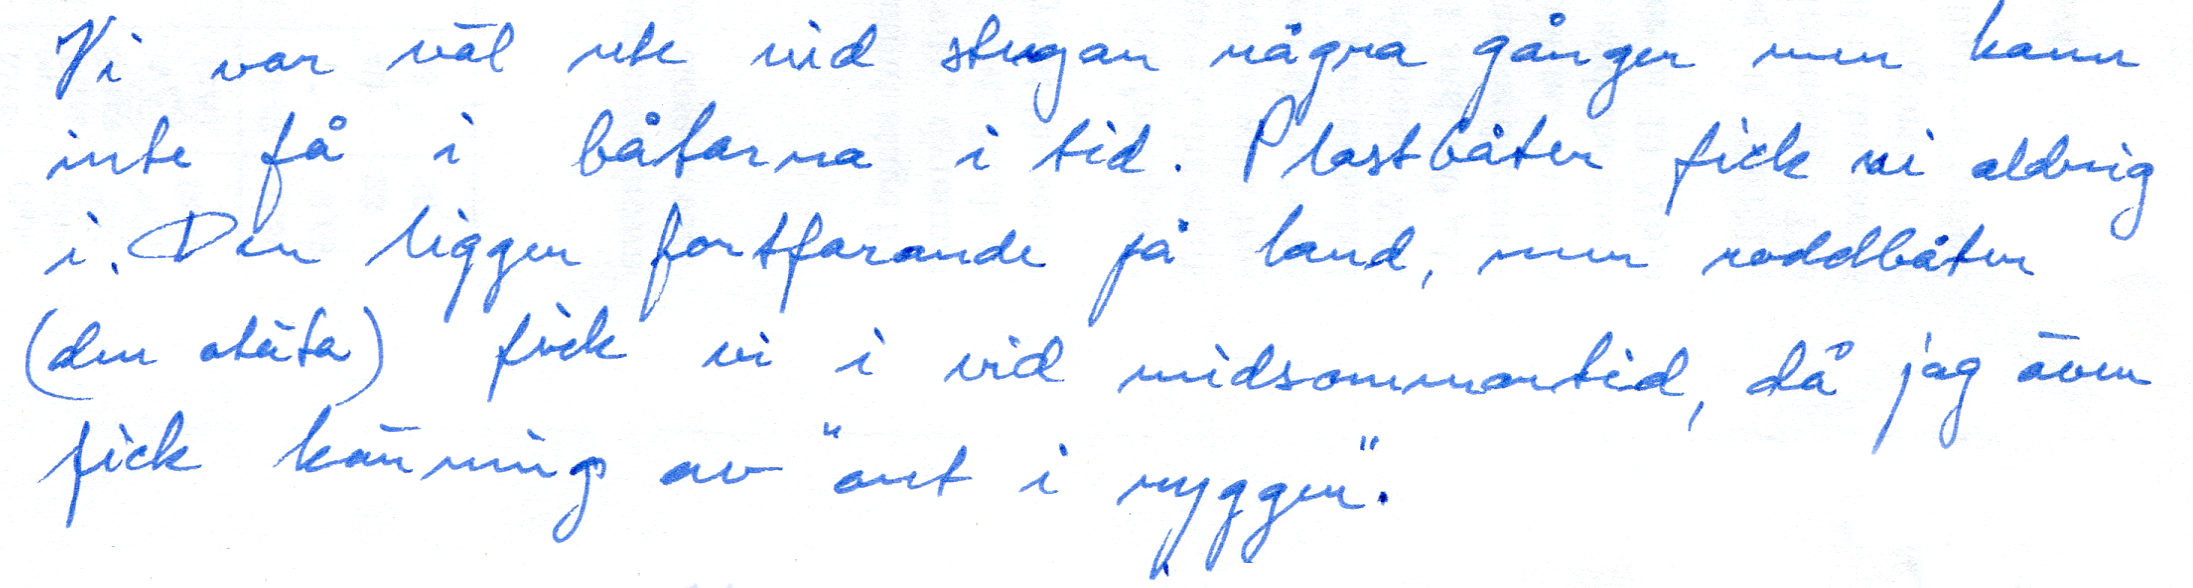 Vi var väl ute vid stugan några gånger men hann
inte få i båtarna i tid. Plastbåten fick vi aldrig
i. Den ligger fortfarande på land, men roddbåten
(den otäta) fick vi i vid midsommartid, då jag även
fick känning av "ont i ryggen".